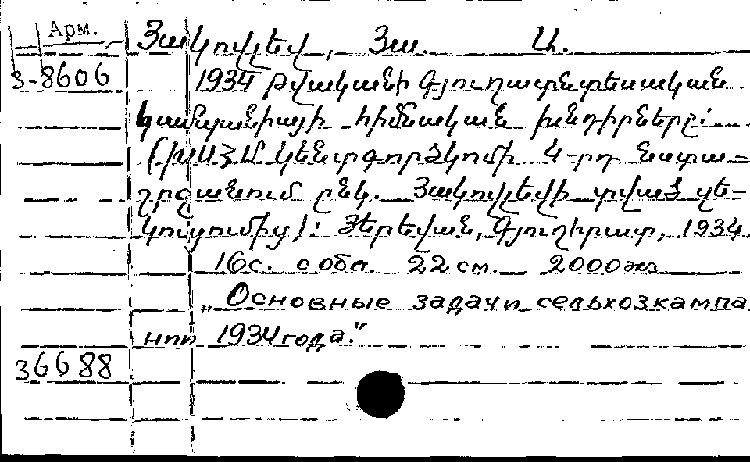 Арм.
Յակովլեվ, Յա. Ա.
3-8606 1934 թվականի գյուղատնտեսական
կամպանիայի հիմնական խնդիրները:
կենտգործկոմի 4-րդ նստա-
շրջանում ընկ. Յակովլեվի տված զե-
կուցումից): Յերեվան, Գյուղհրատ, 1934
16 с. с обл. 22 см. 2000 экз
„Основные задачи сельхозкампа
нии 1934 года."
36688